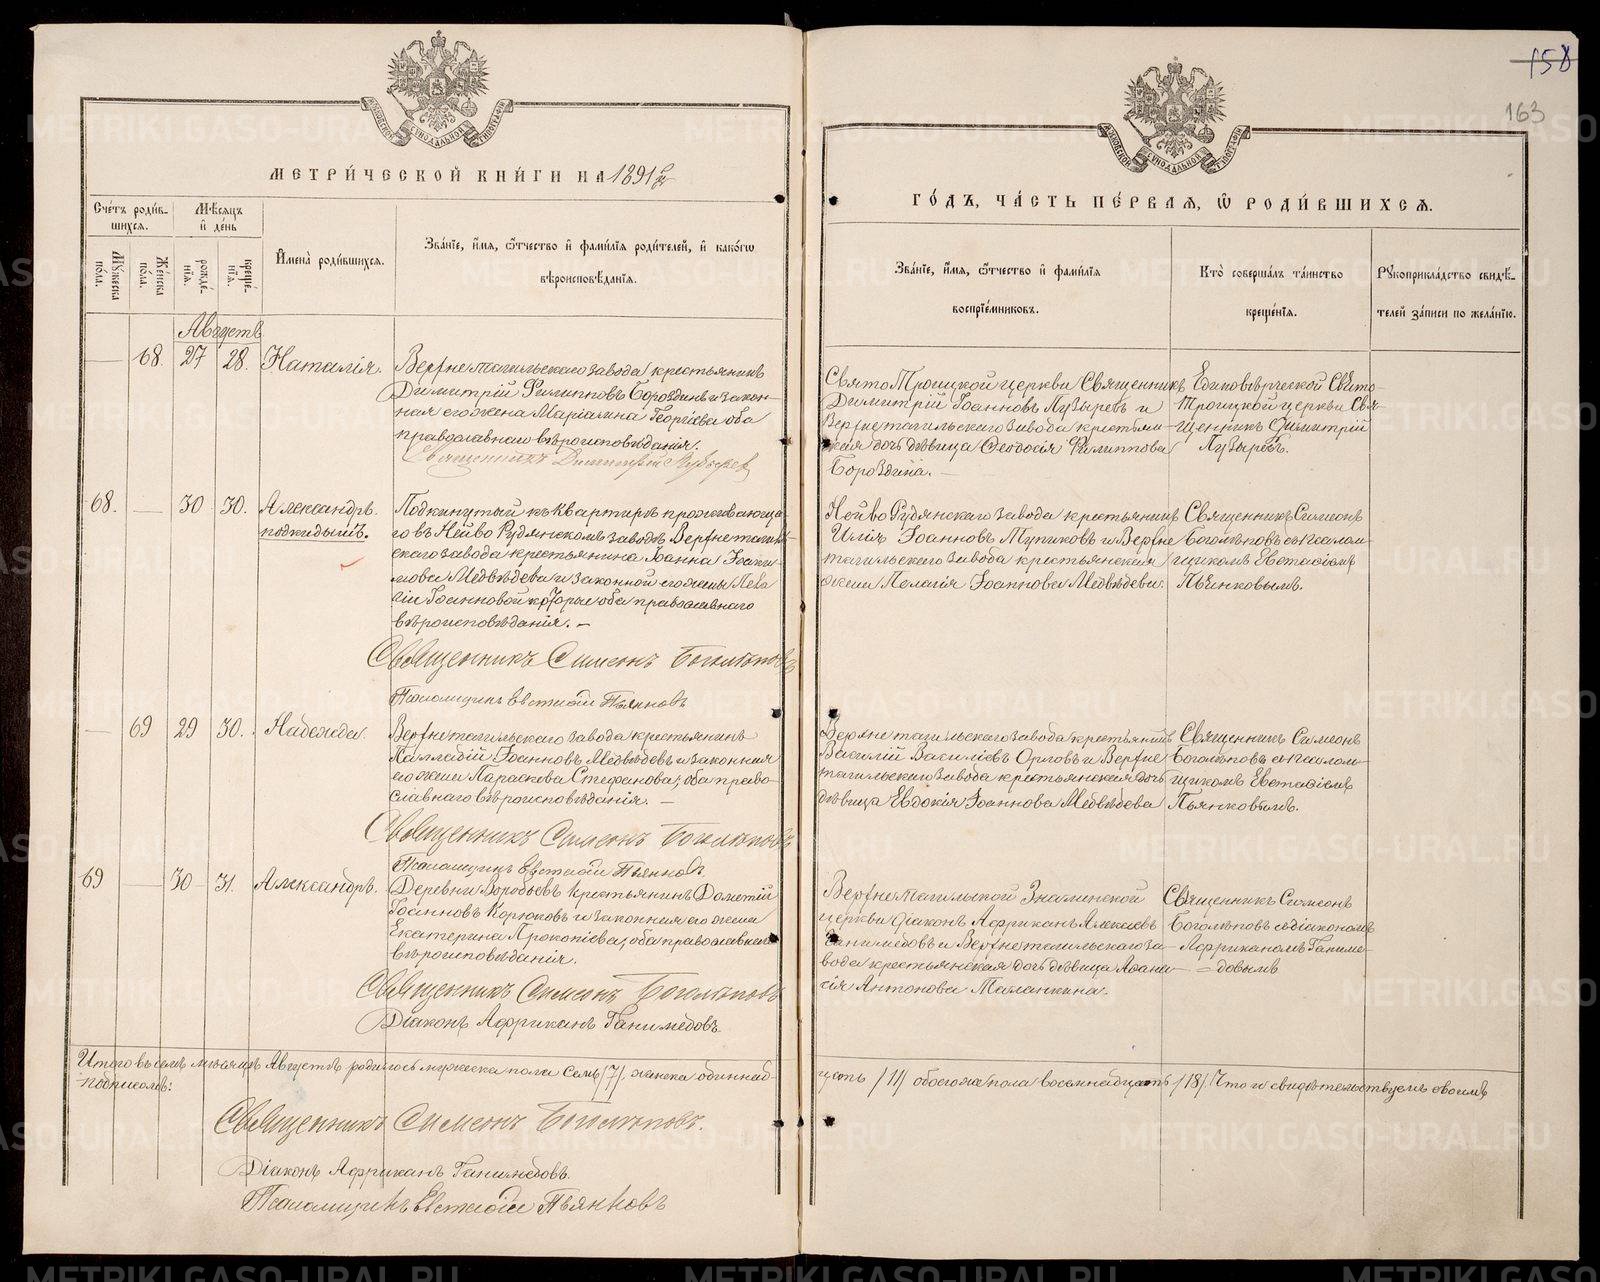 158
163
МЕТРИ́ЧЕСКОЙ КНИ́ГИ НА 1891 г.
ГО́ДЪ, ЧА́СТЬ ПЕ́РВАЯ, Ѿ РОДИ́ВШИХСЯ.
Сче́тъ роди́вшихся.
Мѣ́сяцъ и де́нь
Мꙋ́жеска по́ла.
Же́нска по́ла.
рожде́нїя.
креще́нїя.
Имена̀ роди́вшихся.
Зва́нїе, и́мя, ѻ́тчество и фами́лїя роди́телей, и како́гѡ
вѣроисповѣ́данїя.
Зва́нїе, и́мя, ѻ́тчество и фами́лїя
воспрїе́мниковъ.
Кто̀ соверша́лъ та́инство
креще́нїя.
Рꙋкоприкла́дство свидѣ́-
телей за́писи по жела́нїю.
Августъ
68. 27 28. Наталія.
Верхнетагильскаго завода крестьянинъ
Димитрій Филипповъ Бороздинъ и закон-
ная его жена Маріамна Георгіева оба
православнаго вѣроисповѣданія.
Священникъ Димитрій Пузыревъ
Свято Троицкой церкви Священникъ
Димитрій Іоанновъ Пузыревъ и
Верхнетагильскаго завода крестьян-
ская дочь дѣвица Ѳеодосія Филиппова
Бороздина. —
Единовѣрческой Свято-
Троицкой церкви Свя-
щенникъ Димитрій
Пузыревъ.
68. 30 30. Александръ
подкидышъ.
Подкинутый къ квартирѣ проживающа-
го въ Нейво Рудянскомъ заводѣ Верхнетагиль-
скаго завода крестьянина Іоанна Іоаки-
мова Медвѣдева и законной его жены Пела-
гіи Іоанновой которые оба православнаго
вѣроисповѣданія. —
Священникъ Симеонъ Боголѣповъ
Псаломщикъ Евстафій Пьянковъ
Нейво Рудянскаго завода крестьянинъ
Илія Іоанновъ Тупиковъ и Верхне
тагильскаго завода крестьянская
жена Пелагія Іоаннова Медвѣдева.
Священникъ Симеонъ
Боголѣповъ съ псалом-
щикомъ Евстафіемъ
Пьянковымъ.
69 29 30. Надежда.
Верхнетагильскаго завода крестьянинъ
Палладій Іоанновъ Медвѣдевъ и законная
его жена Параскева Стефанова; оба право-
славнаго вѣроисповѣданія. —
Священникъ Симеонъ Боголѣповъ
Псаломщикъ Евстафій Пьянковъ.
Верхнетагильскаго завода крестьянинъ
Василій Василіевъ Орловъ и Верхне
тагильскаго завода крестьянская дочь
дѣвица Евдокія Іоаннова Медвѣдева
Священникъ Симеонъ
Боголѣповъ съ псалом-
щикомъ Евстафіемъ
Пьянковымъ.
69 30 31. Александръ.
Деревни Воробьевъ крестьянинъ Дометій
Іоанновъ Корюковъ и законная его жена
Екатерина Прокопіева; оба православнаго
вѣроисповѣданія.
Священникъ Симеонъ Боголѣповъ
Діаконъ Африканъ Ганимедовъ.
Верхнетагильской Знаменской
церкви діаконъ Африканъ Алексіевъ
Ганимедовъ и Верхнетагильскаго за-
вода крестьянская дочь дѣвица Аѳана-
сія Антонова Маланкина.
Священникъ Симеонъ
Боголѣповъ съ діакономъ
Африканомъ Ганиме-
довымъ
Итого въ семъ мѣсяцѣ Августѣ родилось мужеска пола семь /7/. женска одиннад-
цать /11/ обоего же пола восемнадцать /18/. Что и свидѣтельствуемъ своимъ
подписомъ:
Священникъ Симеонъ Боголѣповъ.
Діаконъ Африканъ Ганимедовъ.
Псаломщикъ Евстафій Пьянковъ
METRIKI.GASO-URAL.RU